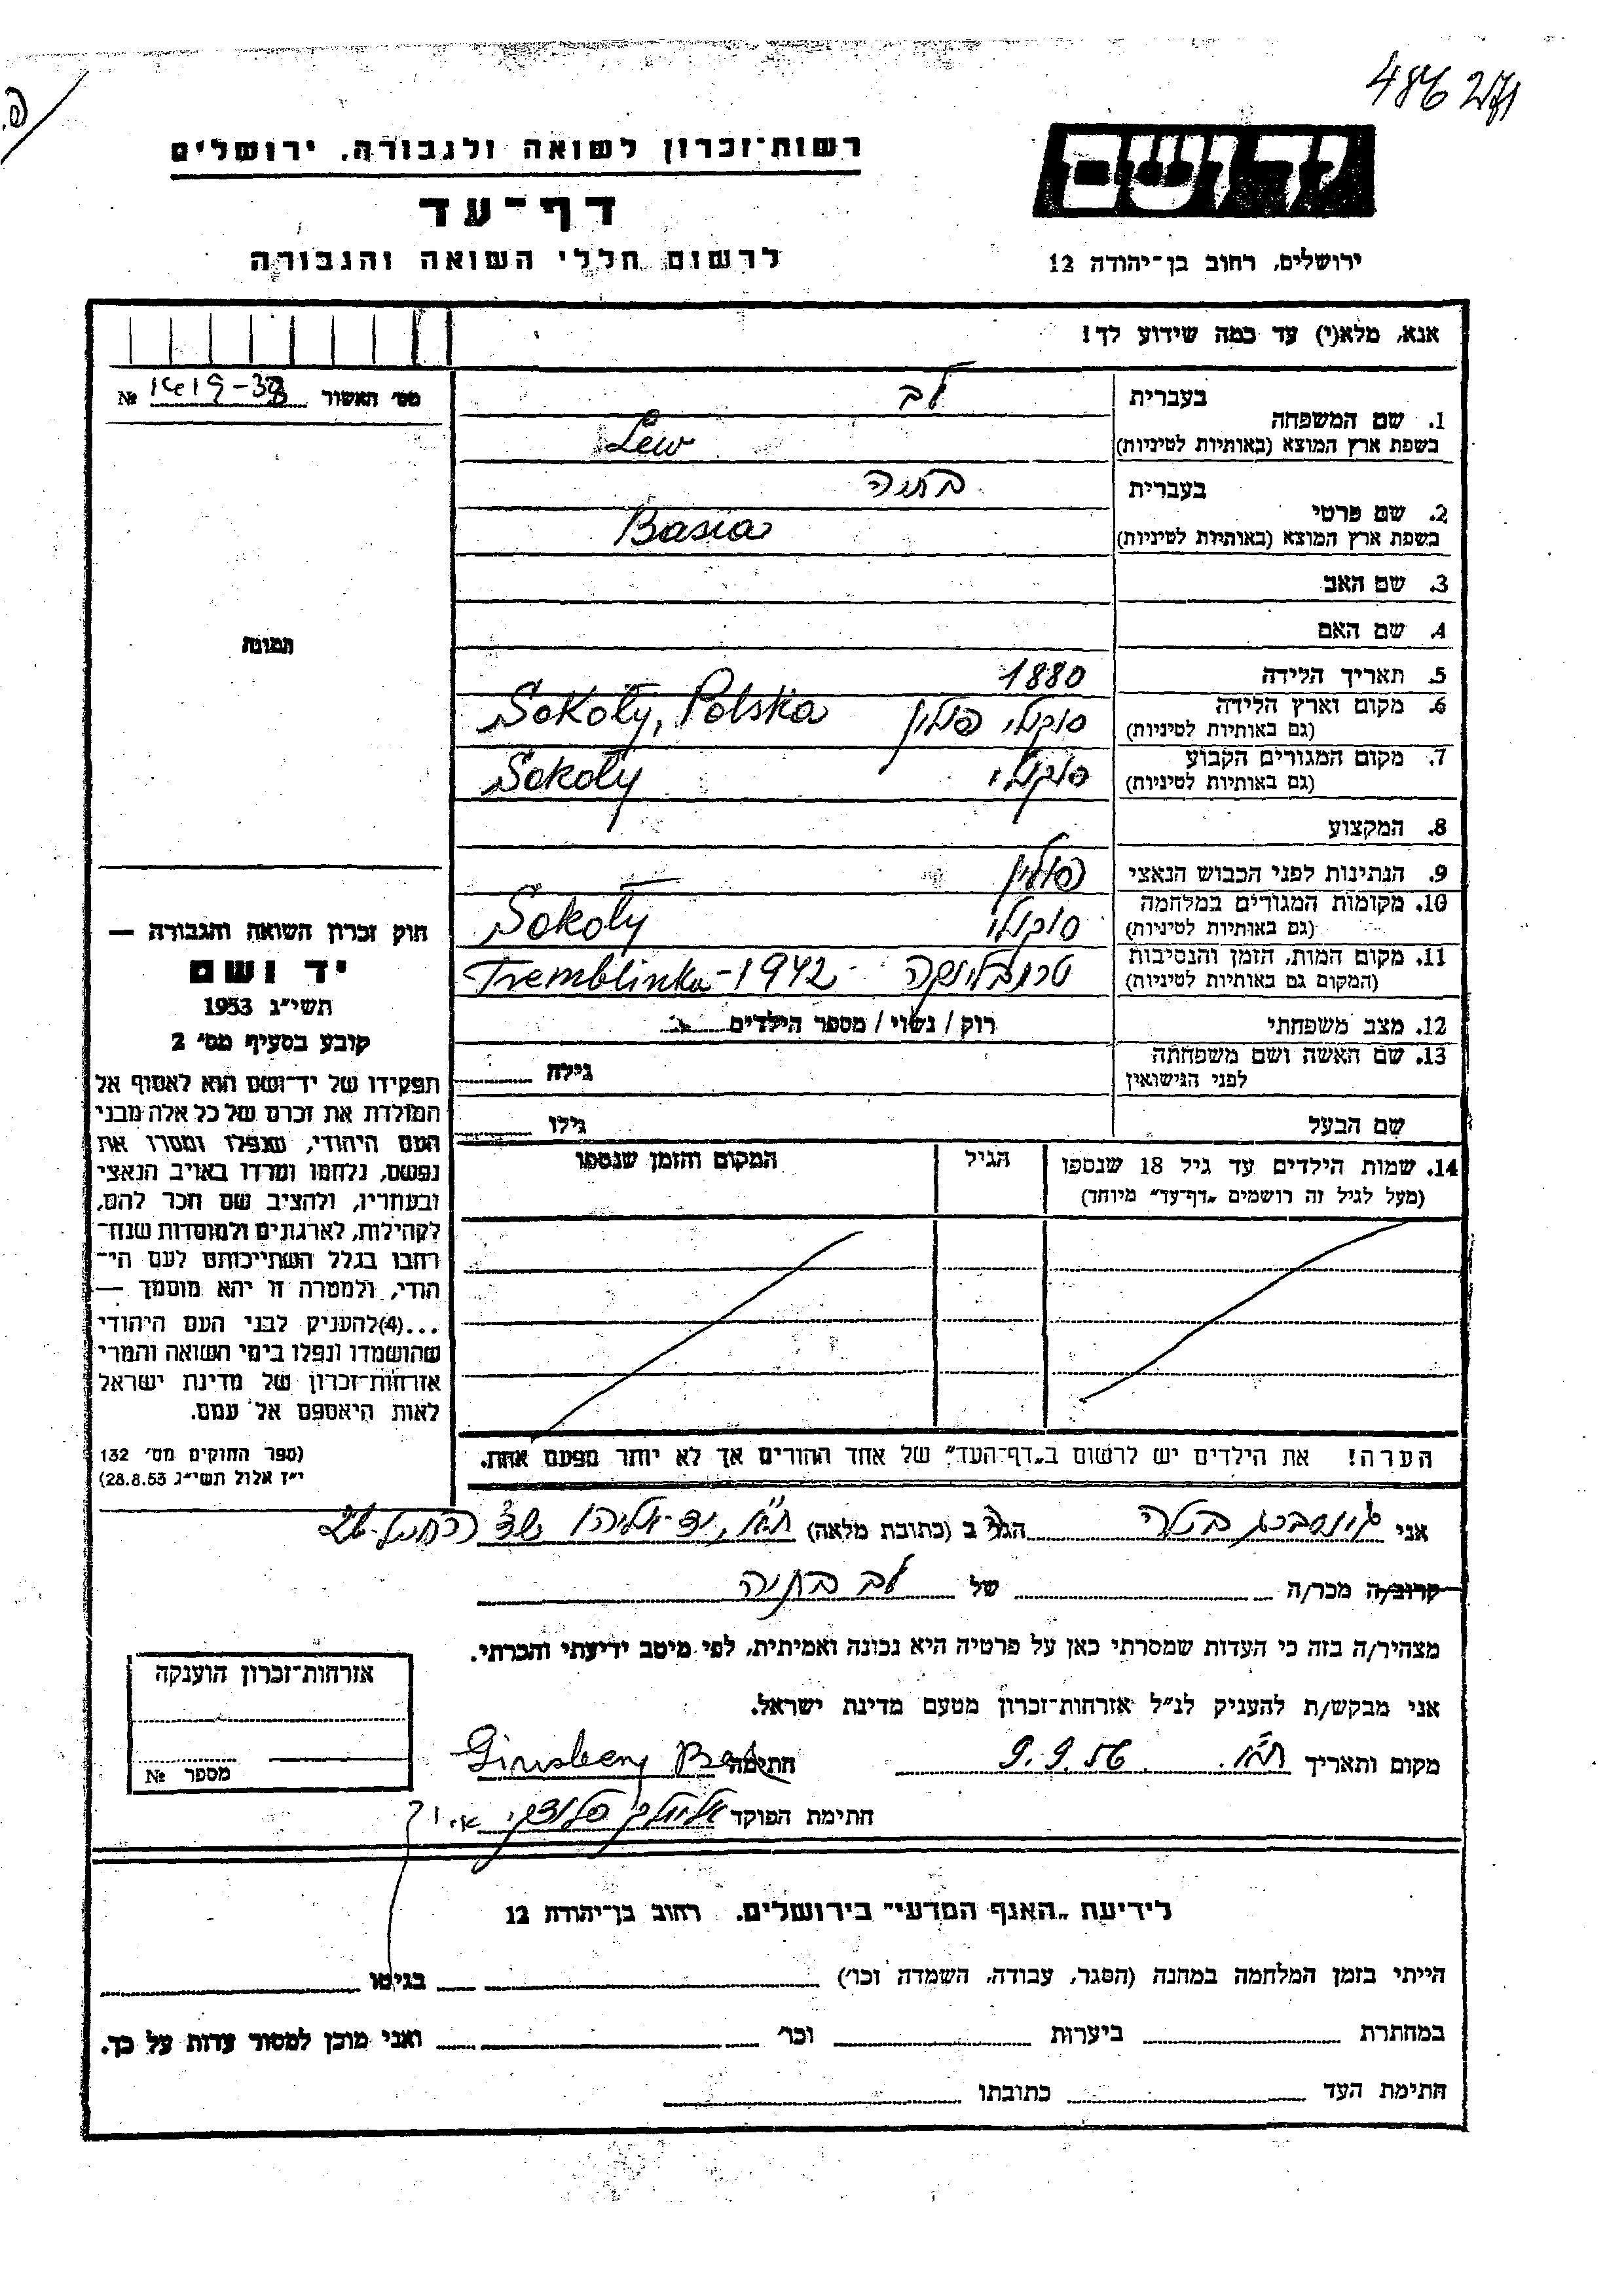 486 271
פ.
רשות־זכרון לשואה ולגבורה, ירושלים
דף־עד
לרשום חללי השואה והגבורה
יד ושם
ירושלים, רחוב בן־יהודה 12
אנא, מלא(י) עד כמה שידוע לך!
מס׳ האשור № 1419-38
בעברית לב
1. שם המשפחה
בשפת ארץ המוצא (באותיות לטיניות) Lew
בעברית בתיה
2. שם פרטי
בשפת ארץ המוצא (באותיות לטיניות) Basia
3. שם האב
4. שם האם
תמונה
5. תאריך הלידה 1880
6. מקום וארץ הלידה סוקולי פולין Sokoły, Polska
(גם באותיות לטיניות)
7. מקום המגורים הקבוע סוקולי Sokoły
(גם באותיות לטיניות)
8. המקצוע
9. הנתינות לפני הכבוש הנאצי פולין
10. מקומות המגורים במלחמה סוקולי Sokoły
(גם באותיות לטיניות)
11. מקום המות, הזמן והנסיבות טרמבלינקה Tremblinka-1942
(המקום גם באותיות לטיניות)
12. מצב משפחתי רוק / נשוי / מספר הילדים
13. שם האשה ושם משפחתה
לפני הנישואין גילה
שם הבעל גילו
14. שמות הילדים עד גיל 18 שנספו הגיל המקום והזמן שנספו
(מעל לגיל זה רושמים „דף־עד״ מיוחד)
הערה! את הילדים יש לרשום ב„דף־העד״ של אחד ההורים אך לא יותר מפעם אחת.
חוק זכרון השואה והגבורה —
יד ושם
תשי״ג 1953
קובע בסעיף מס׳ 2
תפקידו של יד־ושם הוא לאסוף אל
המולדת את זכרם של כל אלה מבני
העם היהודי, שנפלו ומסרו את
נפשם, נלחמו ומרדו באויב הנאצי
ובעוזריו, ולהציב שם וזכר להם,
לקהילות, לארגונים ולמוסדות שנח־
רבו בגלל השתייכותם לעם הי־
הודי, ולמטרה זו יהא מוסמך —
...(4)להעניק לבני העם היהודי
שהושמדו ונפלו בימי השואה והמרי
אזרחות־זכרון של מדינת ישראל
לאות היאספם אל עמם.
(ספר החוקים מס׳ 132
י״ז אלול תשי״ג 28.8.53)
אני גינסברג ברטה הגר/ה ב (כתובת מלאה) ת״א, יד-אליהו
קרוב/ה מכר/ה של לב בתיה
מצהיר/ה בזה כי העדות שמסרתי כאן על פרטיה היא נכונה ואמיתית, לפי מיטב ידיעתי והכרתי.
אני מבקש/ת להעניק לנ״ל אזרחות־זכרון מטעם מדינת ישראל.
מקום ותאריך ת״א. 9.9.56 חתימה Ginsberg
חתימת הפוקד
אזרחות־זכרון הוענקה
מספר №
לידיעת „האגף המדעי״ בירושלים. רחוב בן־יהודה 12
הייתי בזמן המלחמה במחנה (הסגר, עבודה, השמדה וכו׳) בגיטו
במחתרת ביערות וכו׳ ואני מוכן למסור עדות על כך.
חתימת העד כתובתו